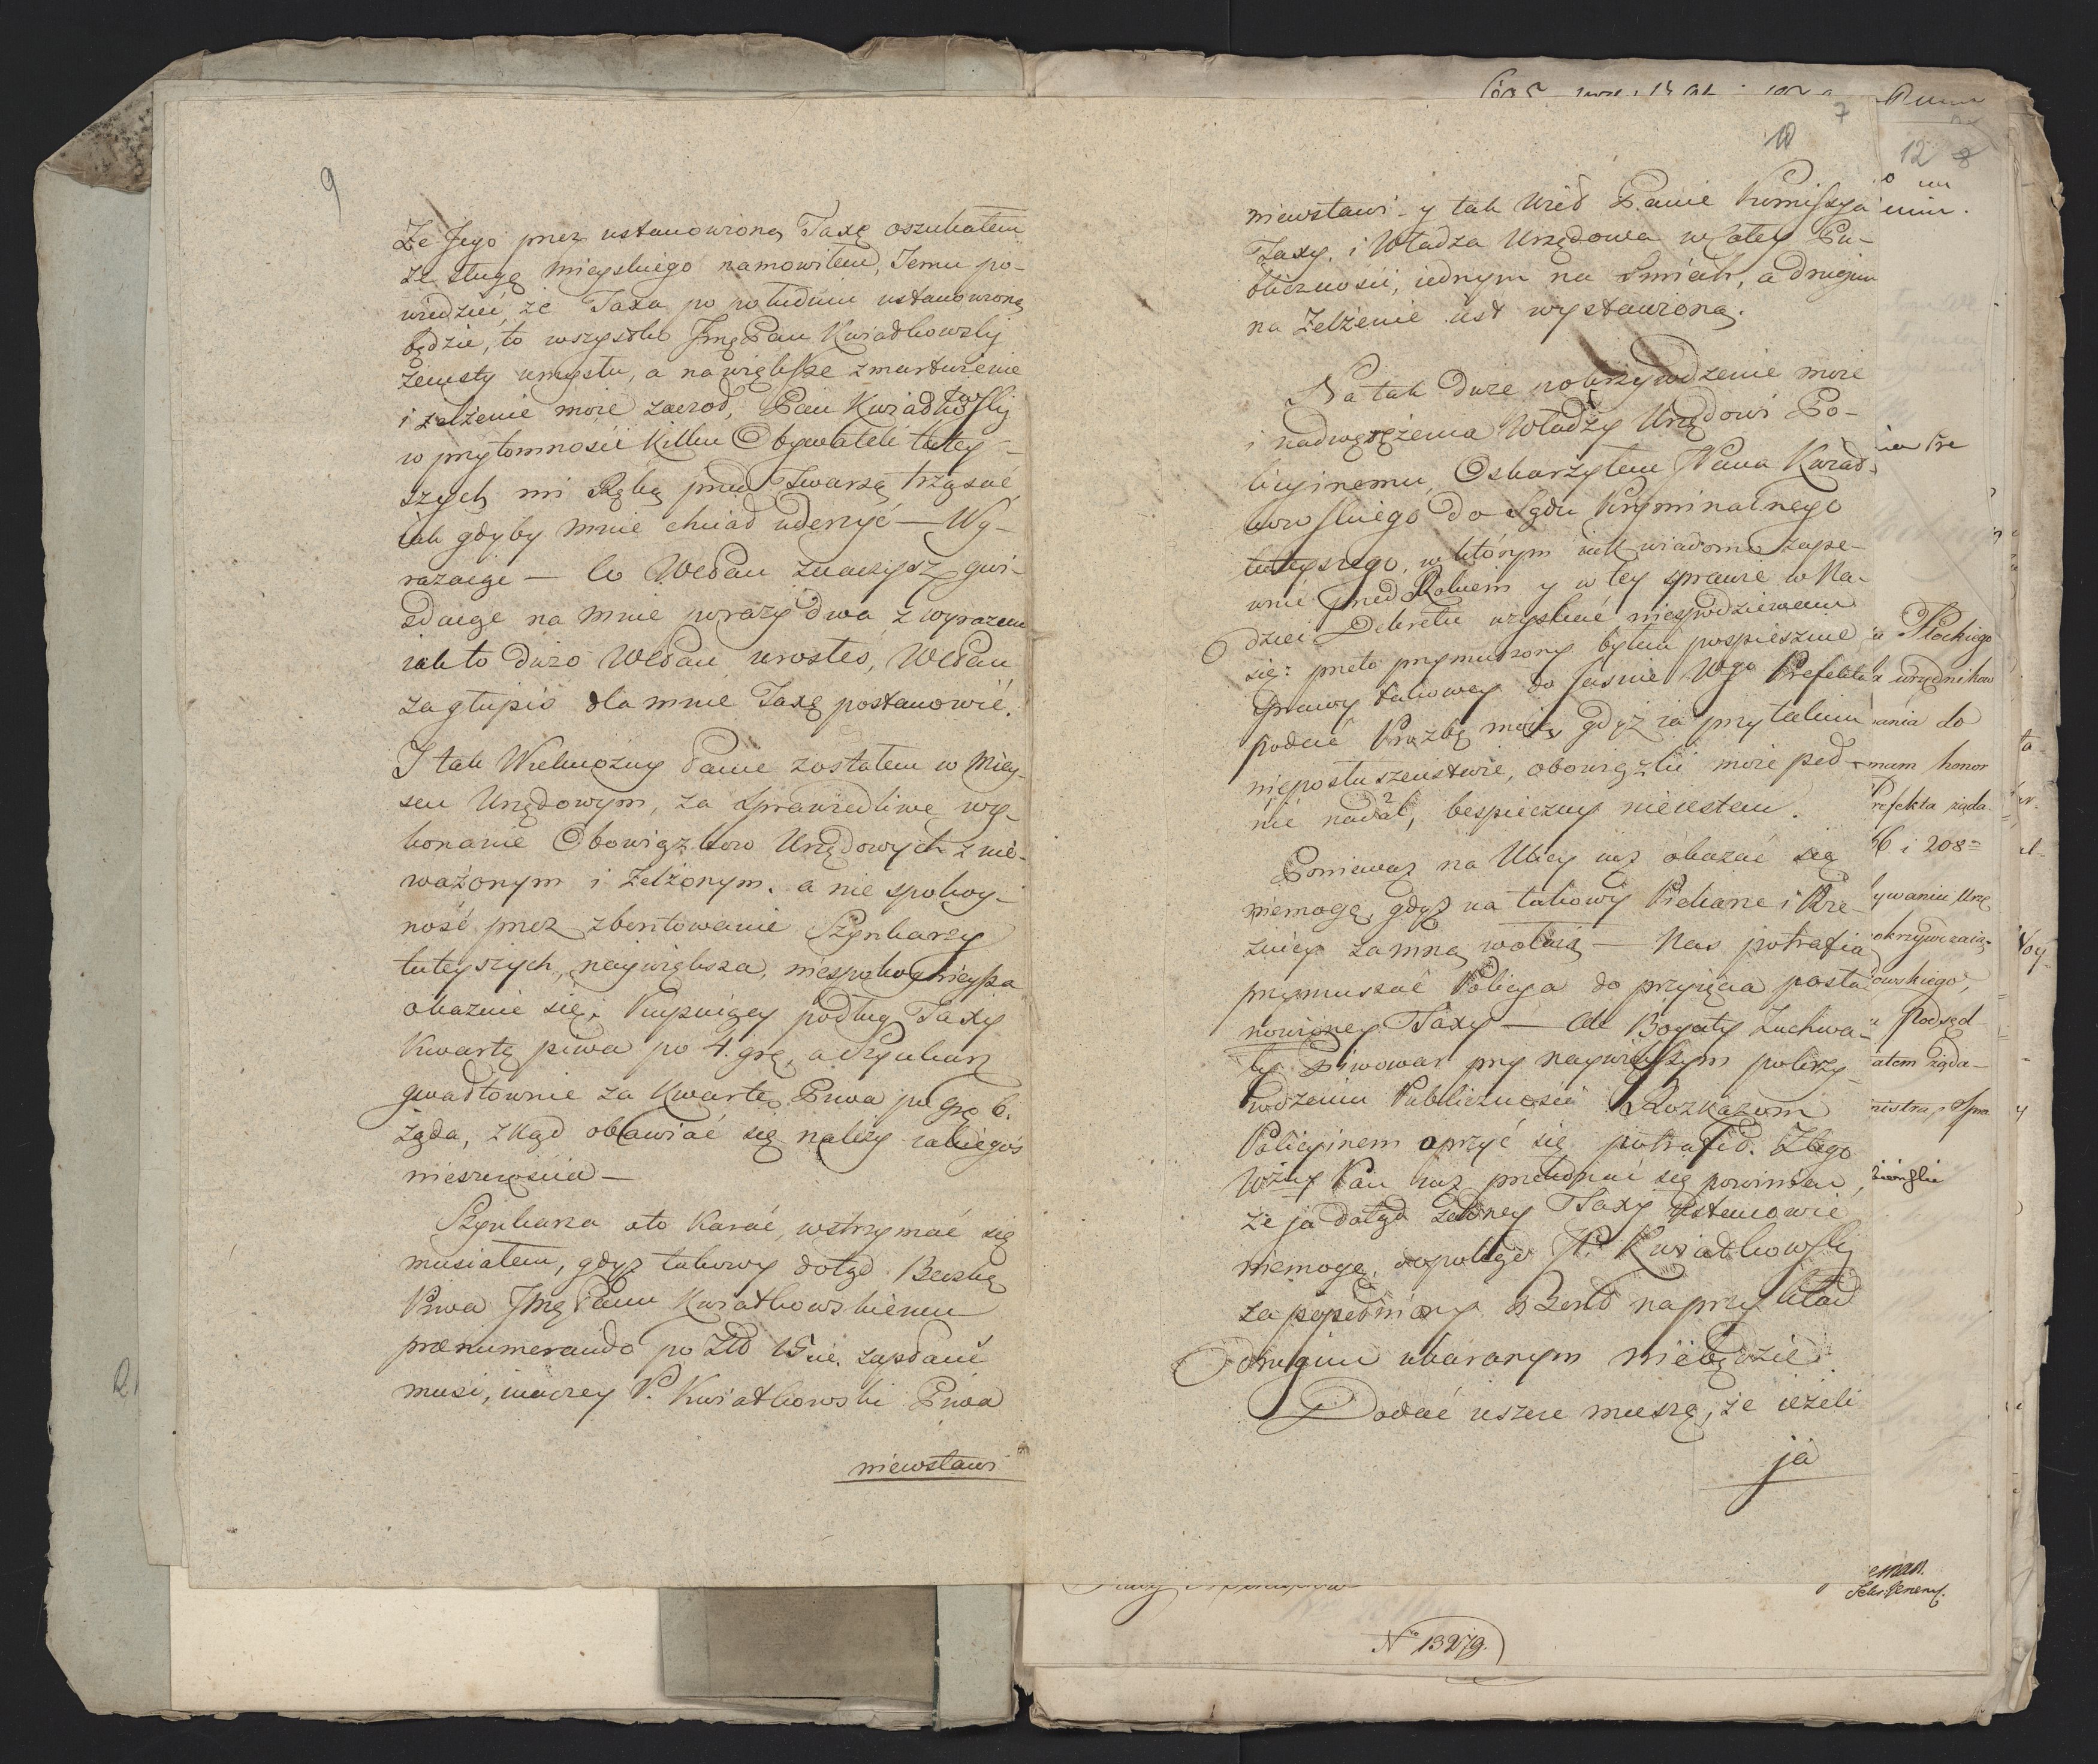 9
Że Jego przez ustanowioną Taxę oszukałem
że sługę mieyskiego namowiłem, Jemu po-
wiedzieć, że Taxa po południu ustanowioną
będzie, to wszystko Jmę Pan Kwiadkowsky
zemsty umysłu, a nawiększe zmartwienie
i zelżenie moie zaczoł, Pan Kwiadkowsky
w przytomnosci Killku Obywateli tutey-
szych mi Ręką przed Twarzą trząsać,
iak gdyby mnie chciał uderzyć — Wy-
razaige — Co WcPan znaczysz gwi-
zdaige na mnie porazy dwa z wyrazem
iak to dużo WcPan urosłeś, WcPan
zagłupio dla mnie Taxę postanowić.
I tak Wielmożny Panie zostałem w Miey-
scu Urzędowym, za sprawiedliwe wy-
konanie Obowiązkow Urzędowych znie-
ważonym i zelżonym, a nie spokoy-
ność przez zbuntowanie Szynkarzy
tuteyszych, naywiększa, niespokoynieysza
okazuie się, Kupuięcy podług Taxy
Kwartę piwa po 4. grę, a Szynkarz
gwałtownie za Kwartę Piwa po grę 6.
żąda, zkąd obawiać się należy iakiegoś
nieszczęścia —
Szynkarza oto karać, wstrzymać się
musiałem, gdyż takowy dotąd Beczkę
Piwa Jmę Panu Kwiatkowskiemu
prænumerando po Złł 15 zapłacić
musi, inaczey P. Kwiatkowski Piwa
niewstawi
7
10
niewstawi - y tak Wieł Panie Komissya
Taxy, i Władza Urzędowa w całey Pu-
bliczności, iednym na Smiech, a drugim
na Zelżenie iest wystawioną.
Na tak duże pokrzywdzenie moie
i nadwęrężenia Władzy Urzędowi Po-
licyinemu, Oskarżyłem JPana Kwiad-
kowskiego do Sądu Kryminalnego
tuteyszego, w którym iak wiadomo zape-
wnie przed Rokiem y w tey sprawie w Na-
dziei Dekretu uzyskać niespodziewam
się: przeto przymuszony byłem pospiesznie
sprawy takowey do Jaśnie Wgo Prefekta
podać Prożbę moię, gdyż ia przy takim
nieposłuszeństwie, obowiązki moie peł-
nić nadal, bespieczny nieiestem.
Ponieważ na Ulicy iuż okazać się
niemogę, gdyż na takowy Piekarze i Rze-
znicy zamną wołaią — Nas potrafia
przymuszać Policya do przyięcia posta-
nowioney Taxy — Ale Bogaty Zuchwa-
ły Piwowar przy naywiększym pokrzy-
wdzeniu Publiczności Rozkazom
Policyinem oprzyć się potrafił. Ztego
Wżny Pan iuż przekonać się powinien,
że ja dotąd żadney Taxy ustanowić
niemogę, dopokąd JP. Kwiatkowsky
za popełniony Bład naprzykład
drugim ukaranym niebędzie.
Dodać iszcze muszę, że ieżeli
ja
12 8
Płockiego
urzędnikow
ania do
mam honor
Prefekta żąda-
6 i 208
ywaniu Urzę
okrzywczaią-
owskiego,
Podsęd-
atem żąda-
nistra Spra
Sekr: Generl.
No 13279.